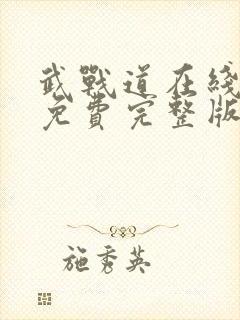 武戰道在綫
免費完整版
施秀英